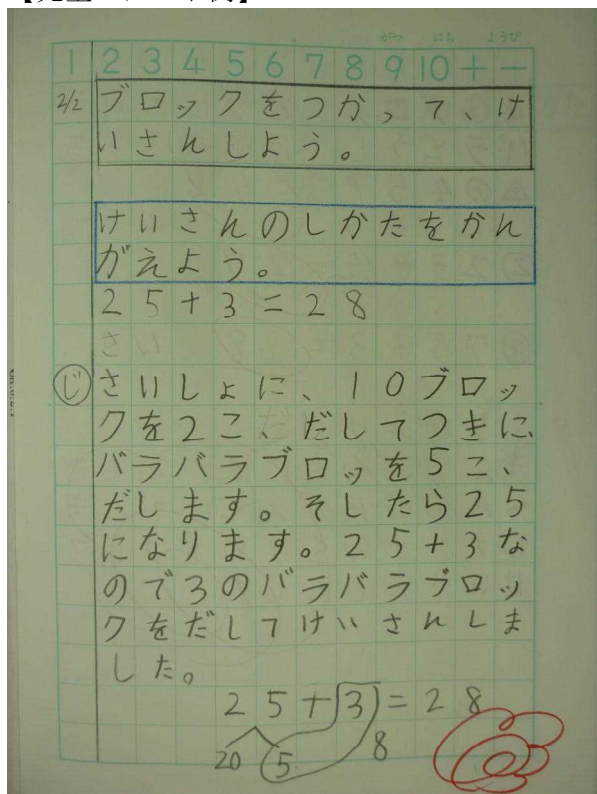 がつ にち ようび
1 2 3 4 5 6 7 8 9 10 + −
2/2 ブロックをつかって、け
いさんしよう。
けいさんのしかたをかん
がえよう。
25+3=28
さい
じ さいしょに、10ブロッ
クを2こ、だしてつきに、
バラバラブロッを5こ、
だします。そしたら25
になります。25+3な
ので3のバラバラブロッ
クをだしてけいさんしま
した。
25+3=28
20 5 8